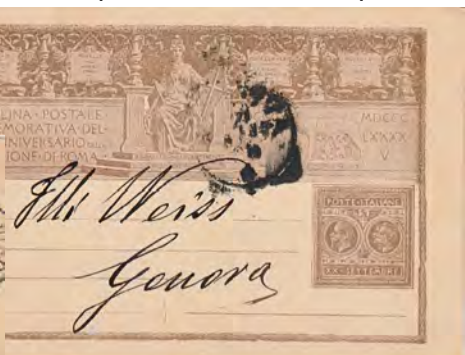 LINA·POSTALE·
MORATIVA·DEL·
NIVERSARIO DELLA
IONE·DI·ROMA
MDCCC
LXXXX
V
POSTE·ITALIANE
XX·SETTEMBRE
Flli Weiss
Genova